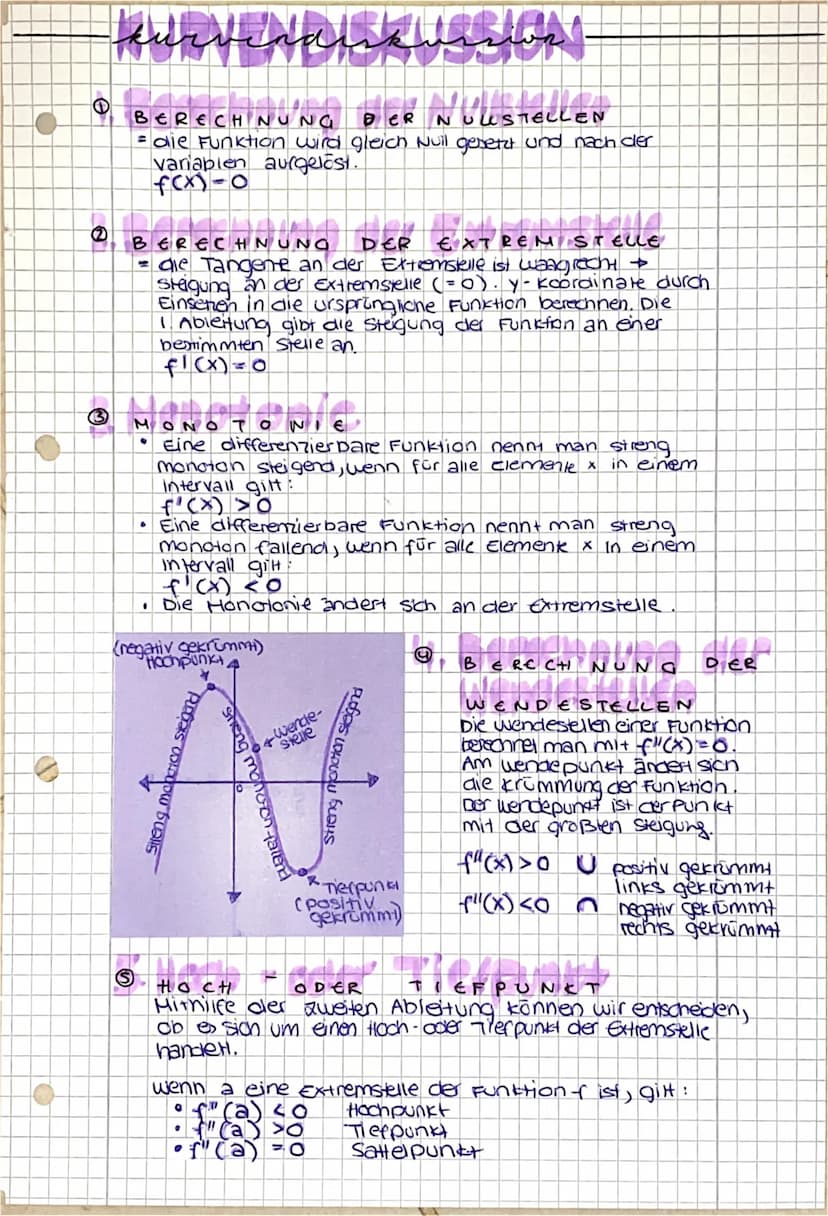 KURVENDISKUSSION
kurvendiskussion
① 1. Berechnung der Nullstellen
BERECHNUNG DER NULLSTELLEN
= die Funktion wird gleich Null gesetzt und nach der
Variablen aufgelöst.
f(x) = 0
② 2. Berechnung der Extremstelle
BERECHNUNG DER EXTREMSTELLE
= die Tangene an der Extremstelle ist waagrecht →
Steigung an der Extremstelle (=0). y-Koordinate durch
Einsetzen in die ursprüngliche Funktion berechnen. Die
1. Ableitung gibt die Steigung der Funktion an einer
bestimmten Stelle an.
f'(x) = 0
③ 3. Monotonie
MONOTONIE
• Eine differenzierbare Funktion nennt man streng
monoton steigend, wenn für alle Elemente x in einem
Intervall gilt:
f'(x) > 0
• Eine differenzierbare Funktion nennt man streng
monoton fallend, wenn für alle Elemente x in einem
Intervall gilt:
f'(x) < 0
• Die Monotonie ändert sich an der Extremstelle.
(negativ gekrümmt)
Hochpunkt
streng monoton steigend
streng monoton fallend
Wende-
stelle
streng monoton steigend
0
Tiefpunkt
(positiv
gekrümmt)
④ 4. Berechnung der
BERECHNUNG DER
Wendestellen
WENDESTELLEN
Die Wendestellen einer Funktion
berechnet man mit f''(x) = 0.
Am Wendepunkt ändert sich
die Krümmung der Funktion.
Der Wendepunkt ist der Punkt
mit der größten Steigung.
f''(x) > 0 ∪ positiv gekrümmt
links gekrümmt
f''(x) < 0 ∩ negativ gekrümmt
rechts gekrümmt
⑤ 5. Hoch- oder Tiefpunkt
HOCH - ODER TIEFPUNKT
Mithilfe der zweiten Ableitung können wir entscheiden,
ob es sich um einen Hoch- oder Tiefpunkt der Extremstelle
handelt.
Wenn a eine Extremstelle der Funktion f ist, gilt:
• f''(a) < 0 Hochpunkt
• f''(a) > 0 Tiefpunkt
• f''(a) = 0 Sattelpunkt